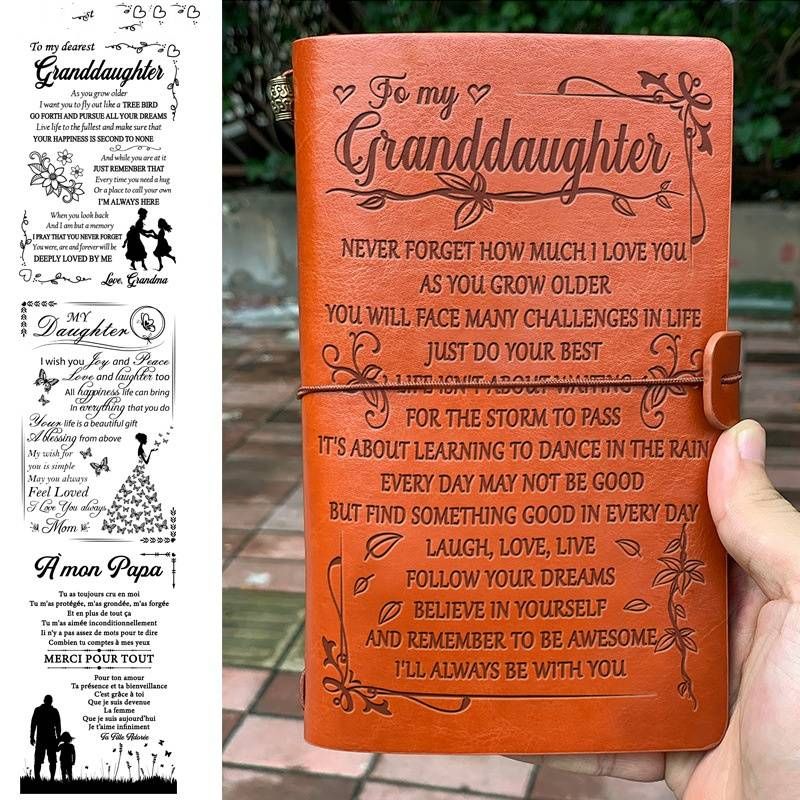 To my dearest
Granddaughter
As you grow older
I want you to fly out like a TREE BIRD
GO FORTH AND PURSUE ALL YOUR DREAMS
Live life to the fullest and make sure that
YOUR HAPPINESS IS SECOND TO NONE
And while you are at it
JUST REMEMBER THAT
Every time you need a hug
Or a place to call your own
I'M ALWAYS HERE
When you look back
And I am but a memory
I PRAY THAT YOU NEVER FORGET
You were, are and forever will be
DEEPLY LOVED BY ME
Love, Grandma
MY
Daughter
I wish you Joy and Peace
Love and laughter too
All happiness life can bring
In everything that you do
Your life is a beautiful gift
A blessing from above
My wish for
you is simple
May you always
Feel Loved
I Love You always
Mom
À mon Papa
Tu as toujours cru en moi
Tu m'as protégée, m'as grondée, m'as forgée
Et en plus de tout ça
Tu m'as aimée inconditionnellement
Il n'y a pas assez de mots pour te dire
Combien tu comptes à mes yeux
MERCI POUR TOUT
Pour ton amour
Ta présence et ta bienveillance
C'est grâce à toi
Que je suis devenue
La femme
Que je suis aujourd'hui
Je t'aime infiniment
Ta Fille Adorée
To my
Granddaughter
NEVER FORGET HOW MUCH I LOVE YOU
AS YOU GROW OLDER
YOU WILL FACE MANY CHALLENGES IN LIFE
JUST DO YOUR BEST
LIFE ISN'T ABOUT WAITING
FOR THE STORM TO PASS
IT'S ABOUT LEARNING TO DANCE IN THE RAIN
EVERY DAY MAY NOT BE GOOD
BUT FIND SOMETHING GOOD IN EVERY DAY
LAUGH, LOVE, LIVE
FOLLOW YOUR DREAMS
BELIEVE IN YOURSELF
AND REMEMBER TO BE AWESOME
I'LL ALWAYS BE WITH YOU